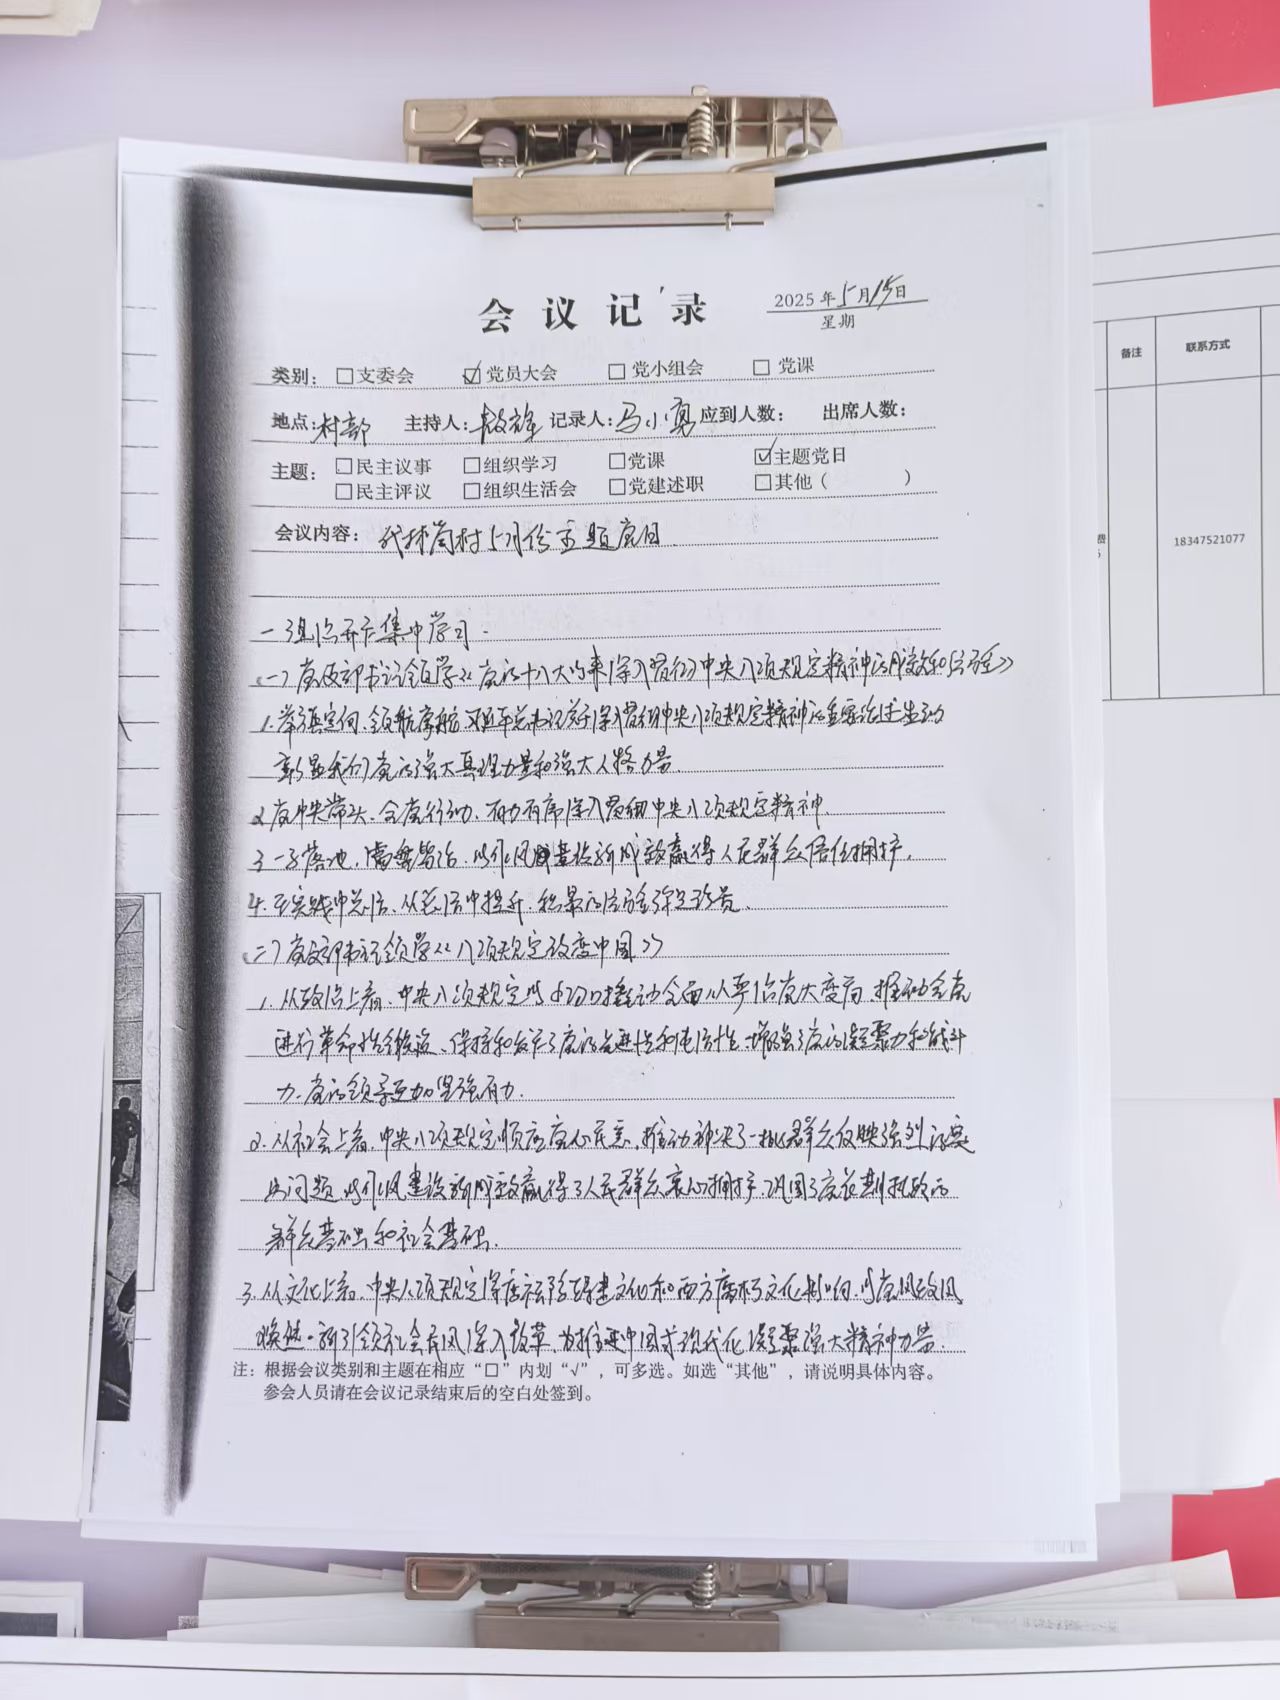 会议记录
2025年5月15日
星期
类别：□支委会 ☑党员大会 □党小组会 □党课
地点：村部 主持人： 记录人：马小勇 应到人数： 出席人数：
主题：□民主议事 □组织学习 □党课 ☑主题党日
□民主评议 □组织生活会 □党建述职 □其他（ ）
会议内容： 村5月份主题党日
一、组织开展集中学习.
(一)党支部书记领学《党的十八大以来深入贯彻中央八项规定精神的成效和经验》
1.举旗定向、领航掌舵，习近平总书记关于深入贯彻中央八项规定精神的重要论述生动
彰显我们党的强大真理力量和强大人格力量.
2.党中央带头、全党行动、有力有序深入贯彻中央八项规定精神.
3.一子落地，满盘皆活，以作风建设新成效赢得人民群众信任拥护.
4.在实践中总结、从总结中提升，积累的经验弥足珍贵.
(二)党支部书记领学《八项规定改变中国》
1.从政治上看，中央八项规定以小切口撬动全面从严治党大变局，推动全党
进行革命性锻造、保持和发展了党的先进性和纯洁性，增强了党的凝聚力和战斗
力，党的领导更加坚强有力.
2.从社会上看，中央八项规定顺应党心民意，推动解决了一批群众反映强烈的突
出问题，以作风建设新成效赢得了人民群众衷心拥护，巩固了党长期执政的
群众基础和社会基础.
3.从文化上看，中央八项规定深度祛除封建文化和西方腐朽文化影响，以党风政风
焕然一新引领社会民风深入改革，为推进中国式现代化凝聚强大精神力量.
注：根据会议类别和主题在相应“□”内划“√”，可多选。如选“其他”，请说明具体内容。
参会人员请在会议记录结束后的空白处签到。
备注 联系方式
费
18347521077